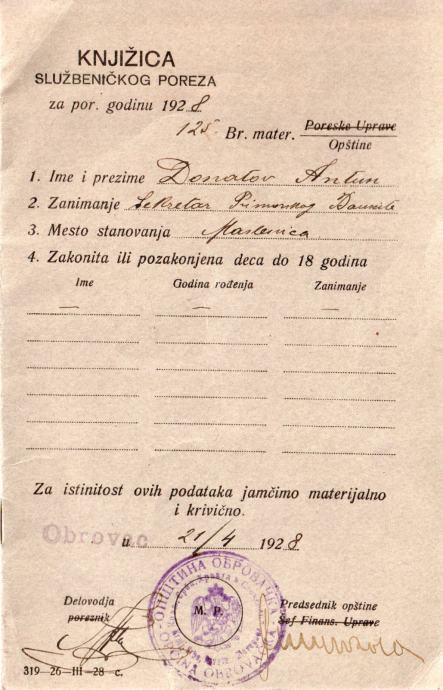 KNJIŽICA
SLUŽBENIČKOG POREZA
za por. godinu 1928
125 Br. mater. Poreske Uprave
Opštine
1. Ime i prezime Donatov Antun
2. Zanimanje Sekretar
3. Mesto stanovanja Maslenica
4. Zakonita ili pozakonjena deca do 18 godina
Ime Godina rođenja Zanimanje
— — —
Za istinitost ovih podataka jamčimo materijalno
i krivično.
Obrovac
u 21/4 1928
ОПШТИНА ОБРОВАЧКА
M. P.
OPĆINA OBROVAČKA
Delovodja
poreznik
Predsednik opštine
Šef Finans. Uprave
319—26—III—28 c.